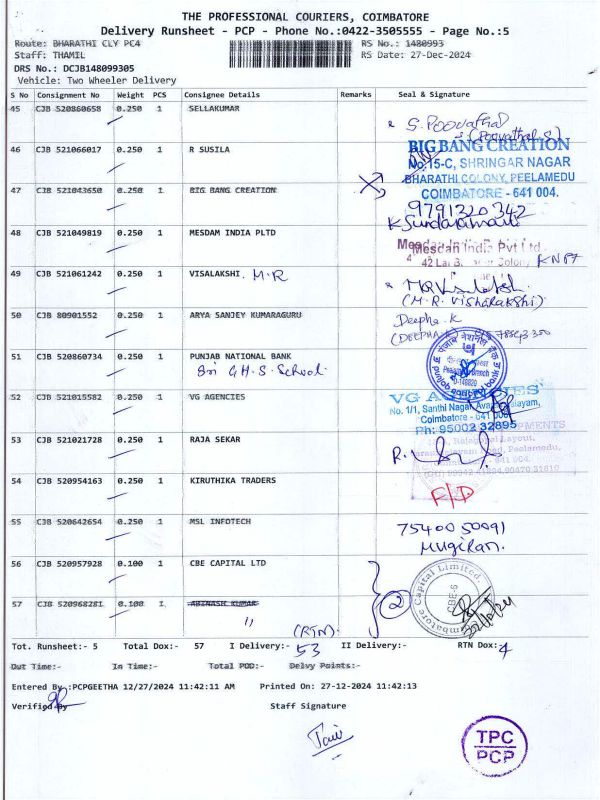 THE PROFESSIONAL COURIERS, COIMBATORE
Delivery Runsheet - PCP - Phone No.:0422-3505555 - Page No.:5
Route: BHARATHI CLY PC4
RS No.: 1480993
Staff: THAMIL
RS Date: 27-Dec-2024
DRS No.: DCJB148099305
Vehicle: Two Wheeler Delivery
S No Consignment No Weight PCS Consignee Details Remarks Seal & Signature
45 CJB 520860658 0.250 1 SELLAKUMAR
S. Poovathal
(Poovathal.S)
46 CJB 521066017 0.250 1 R SUSILA
BIG BANG CREATION
No.15-C, SHRINGAR NAGAR
BHARATHI COLONY, PEELAMEDU
COIMBATORE - 641 004.
47 CJB 521043650 0.250 1 BIG BANG CREATION
9791320342
48 CJB 521049819 0.250 1 MESDAM INDIA PLTD
Mesdan India Pvt Ltd
49 CJB 521061242 0.250 1 VISALAKSHI. M.R
(M.R. VISHALAKSHI)
50 CJB 80901552 0.250 1 ARYA SANJEY KUMARAGURU
Deepha K
51 CJB 520860734 0.250 1 PUNJAB NATIONAL BANK
G.H.S. School
52 CJB 521015582 0.250 1 VG AGENCIES
VG AGENCIES
No. 1/1, Santhi Nagar
Coimbatore - 641
Ph: 95002 32895
53 CJB 521021728 0.250 1 RAJA SEKAR
54 CJB 520954163 0.250 1 KIRUTHIKA TRADERS
55 CJB 520642654 0.250 1 MSL INFOTECH
7540050091
Mugilan.
56 CJB 520957928 0.100 1 CBE CAPITAL LTD
2
57 CJB 520968281 0.100 1 ABINASH KUMAR
(RTN)
Tot. Runsheet:- 5 Total Dox:- 57 I Delivery:- 53 II Delivery:- RTN Dox: 4
Out Time:- In Time:- Total POD:- Delvy Points:-
Entered By :PCPGEETHA 12/27/2024 11:42:11 AM Printed On: 27-12-2024 11:42:13
Verified By
Staff Signature
TPC
PCP